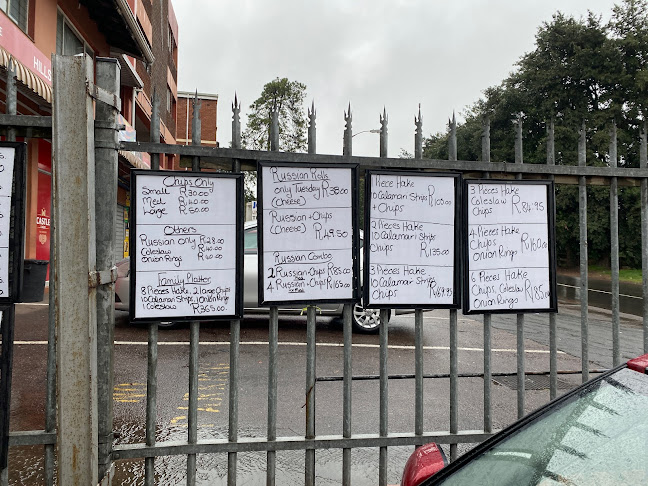 HILLS
CASTLE
Chips Only
Small R30.00
Med R40.00
Large R50.00
Others
Russian only R28.00
Coleslaw R10.00
Onion Rings R40.00
Family Platter
8 Piece Hake, 2 Large Chips
10 Calamari Strips, 1 Onion Rings
1 Coleslaw R365.00
Russian Rolls
only Tuesday R38.00
(Cheese)
Russian + Chips
(Cheese) R49.50
Russian Combo
2 Russian + Chips R85.00
4 Russian + Chips R165.00
1 Piece Hake
10 Calamari Strips R100.00
+ Chips
2 Pieces Hake
10 Calamari Strips
Chips R135.00
3 Piece Hake
10 Calamari Strips
Chips R169.95
3 Pieces Hake
Chips R84.95
4 Pieces Hake
Chips R160.00
Onion Rings
6 Pieces Hake
Chips, Coleslaw R185.00
Onion Rings